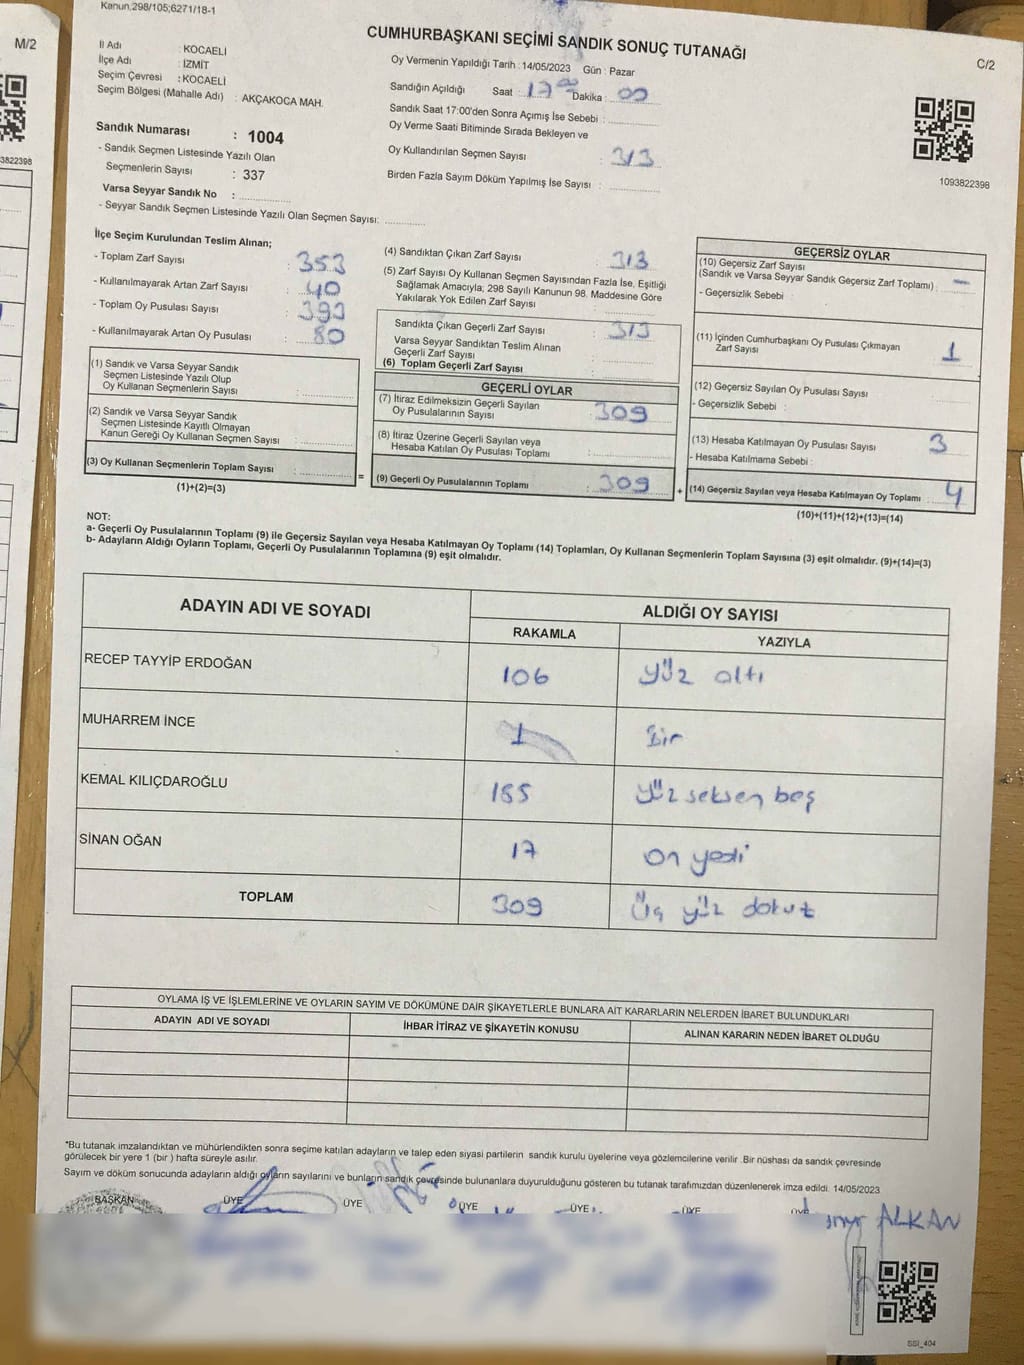 Kanun;298/105;6271/18-1
CUMHURBAŞKANI SEÇİMİ SANDIK SONUÇ TUTANAĞI
M/2
C/2
İl Adı : KOCAELİ
İlçe Adı : İZMİT
Seçim Çevresi : KOCAELİ
Seçim Bölgesi (Mahalle Adı) : AKÇAKOCA MAH.
Oy Vermenin Yapıldığı Tarih : 14/05/2023 Gün : Pazar
Sandığın Açıldığı Saat : 17 00 Dakika : 00
Sandık Saat 17:00'den Sonra Açımış İse Sebebi :
Oy Verme Saati Bitiminde Sırada Bekleyen ve
Oy Kullandırılan Seçmen Sayısı : 313
Birden Fazla Sayım Döküm Yapılmış İse Sayısı :
3822398
1093822398
Sandık Numarası : 1004
- Sandık Seçmen Listesinde Yazılı Olan
Seçmenlerin Sayısı : 337
Varsa Seyyar Sandık No :
- Seyyar Sandık Seçmen Listesinde Yazılı Olan Seçmen Sayısı:
İlçe Seçim Kurulundan Teslim Alınan;
- Toplam Zarf Sayısı : 353
- Kullanılmayarak Artan Zarf Sayısı : 40
- Toplam Oy Pusulası Sayısı : 393
- Kullanılmayarak Artan Oy Pusulası : 80
(1) Sandık ve Varsa Seyyar Sandık
Seçmen Listesinde Yazılı Olup
Oy Kullanan Seçmenlerin Sayısı :
(2) Sandık ve Varsa Seyyar Sandık
Seçmen Listesinde Kayıtlı Olmayan
Kanun Gereği Oy Kullanan Seçmen Sayısı :
(3) Oy Kullanan Seçmenlerin Toplam Sayısı :
(1)+(2)=(3)
=
(4) Sandıktan Çıkan Zarf Sayısı : 313
(5) Zarf Sayısı Oy Kullanan Seçmen Sayısından Fazla İse, Eşitliği
Sağlamak Amacıyla; 298 Sayılı Kanunun 98. Maddesine Göre
Yakılarak Yok Edilen Zarf Sayısı :
Sandıkta Çıkan Geçerli Zarf Sayısı : 313
Varsa Seyyar Sandıktan Teslim Alınan
Geçerli Zarf Sayısı :
(6) Toplam Geçerli Zarf Sayısı :
GEÇERLİ OYLAR
(7) İtiraz Edilmeksizin Geçerli Sayılan
Oy Pusulalarının Sayısı : 309
(8) İtiraz Üzerine Geçerli Sayılan veya
Hesaba Katılan Oy Pusulası Toplamı :
(9) Geçerli Oy Pusulalarının Toplamı : 309
+
GEÇERSİZ OYLAR
(10) Geçersiz Zarf Sayısı
(Sandık ve Varsa Seyyar Sandık Geçersiz Zarf Toplamı) : –
- Geçersizlik Sebebi :
(11) İçinden Cumhurbaşkanı Oy Pusulası Çıkmayan
Zarf Sayısı : 1
(12) Geçersiz Sayılan Oy Pusulası Sayısı :
- Geçersizlik Sebebi :
(13) Hesaba Katılmayan Oy Pusulası Sayısı : 3
- Hesaba Katılmama Sebebi :
(14) Geçersiz Sayılan veya Hesaba Katılmayan Oy Toplamı : 4
(10)+(11)+(12)+(13)=(14)
NOT:
a- Geçerli Oy Pusulalarının Toplamı (9) ile Geçersiz Sayılan veya Hesaba Katılmayan Oy Toplamı (14) Toplamları, Oy Kullanan Seçmenlerin Toplam Sayısına (3) eşit olmalıdır. (9)+(14)=(3)
b- Adayların Aldığı Oyların Toplamı, Geçerli Oy Pusulalarının Toplamına (9) eşit olmalıdır.
ADAYIN ADI VE SOYADI
ALDIĞI OY SAYISI
RAKAMLA YAZIYLA
RECEP TAYYİP ERDOĞAN 106 yüz altı
MUHARREM İNCE 1 Bir
KEMAL KILIÇDAROĞLU 185 yüz seksen beş
SİNAN OĞAN 17 on yedi
TOPLAM 309 Üç yüz dokuz
OYLAMA İŞ VE İŞLEMLERİNE VE OYLARIN SAYIM VE DÖKÜMÜNE DAİR ŞİKAYETLERLE BUNLARA AİT KARARLARIN NELERDEN İBARET BULUNDUKLARI
ADAYIN ADI VE SOYADI İHBAR İTİRAZ VE ŞİKAYETİN KONUSU ALINAN KARARIN NEDEN İBARET OLDUĞU
*Bu tutanak imzalandıktan ve mühürlendikten sonra seçime katılan adayların ve talep eden siyasi partilerin sandık kurulu üyelerine veya gözlemcilerine verilir .Bir nüshası da sandık çevresinde
görülecek bir yere 1 (bir ) hafta süreyle asılır.
Sayım ve döküm sonucunda adayların aldığı oyların sayılarını ve bunların sandık çevresinde bulunanlara duyurulduğunu gösteren bu tutanak tarafımızdan düzenlenerek imza edildi. 14/05/2023
BAŞKAN ÜYE ÜYE ÜYE ÜYE ÜYE ÜYE
ALKAN
SSİ_404